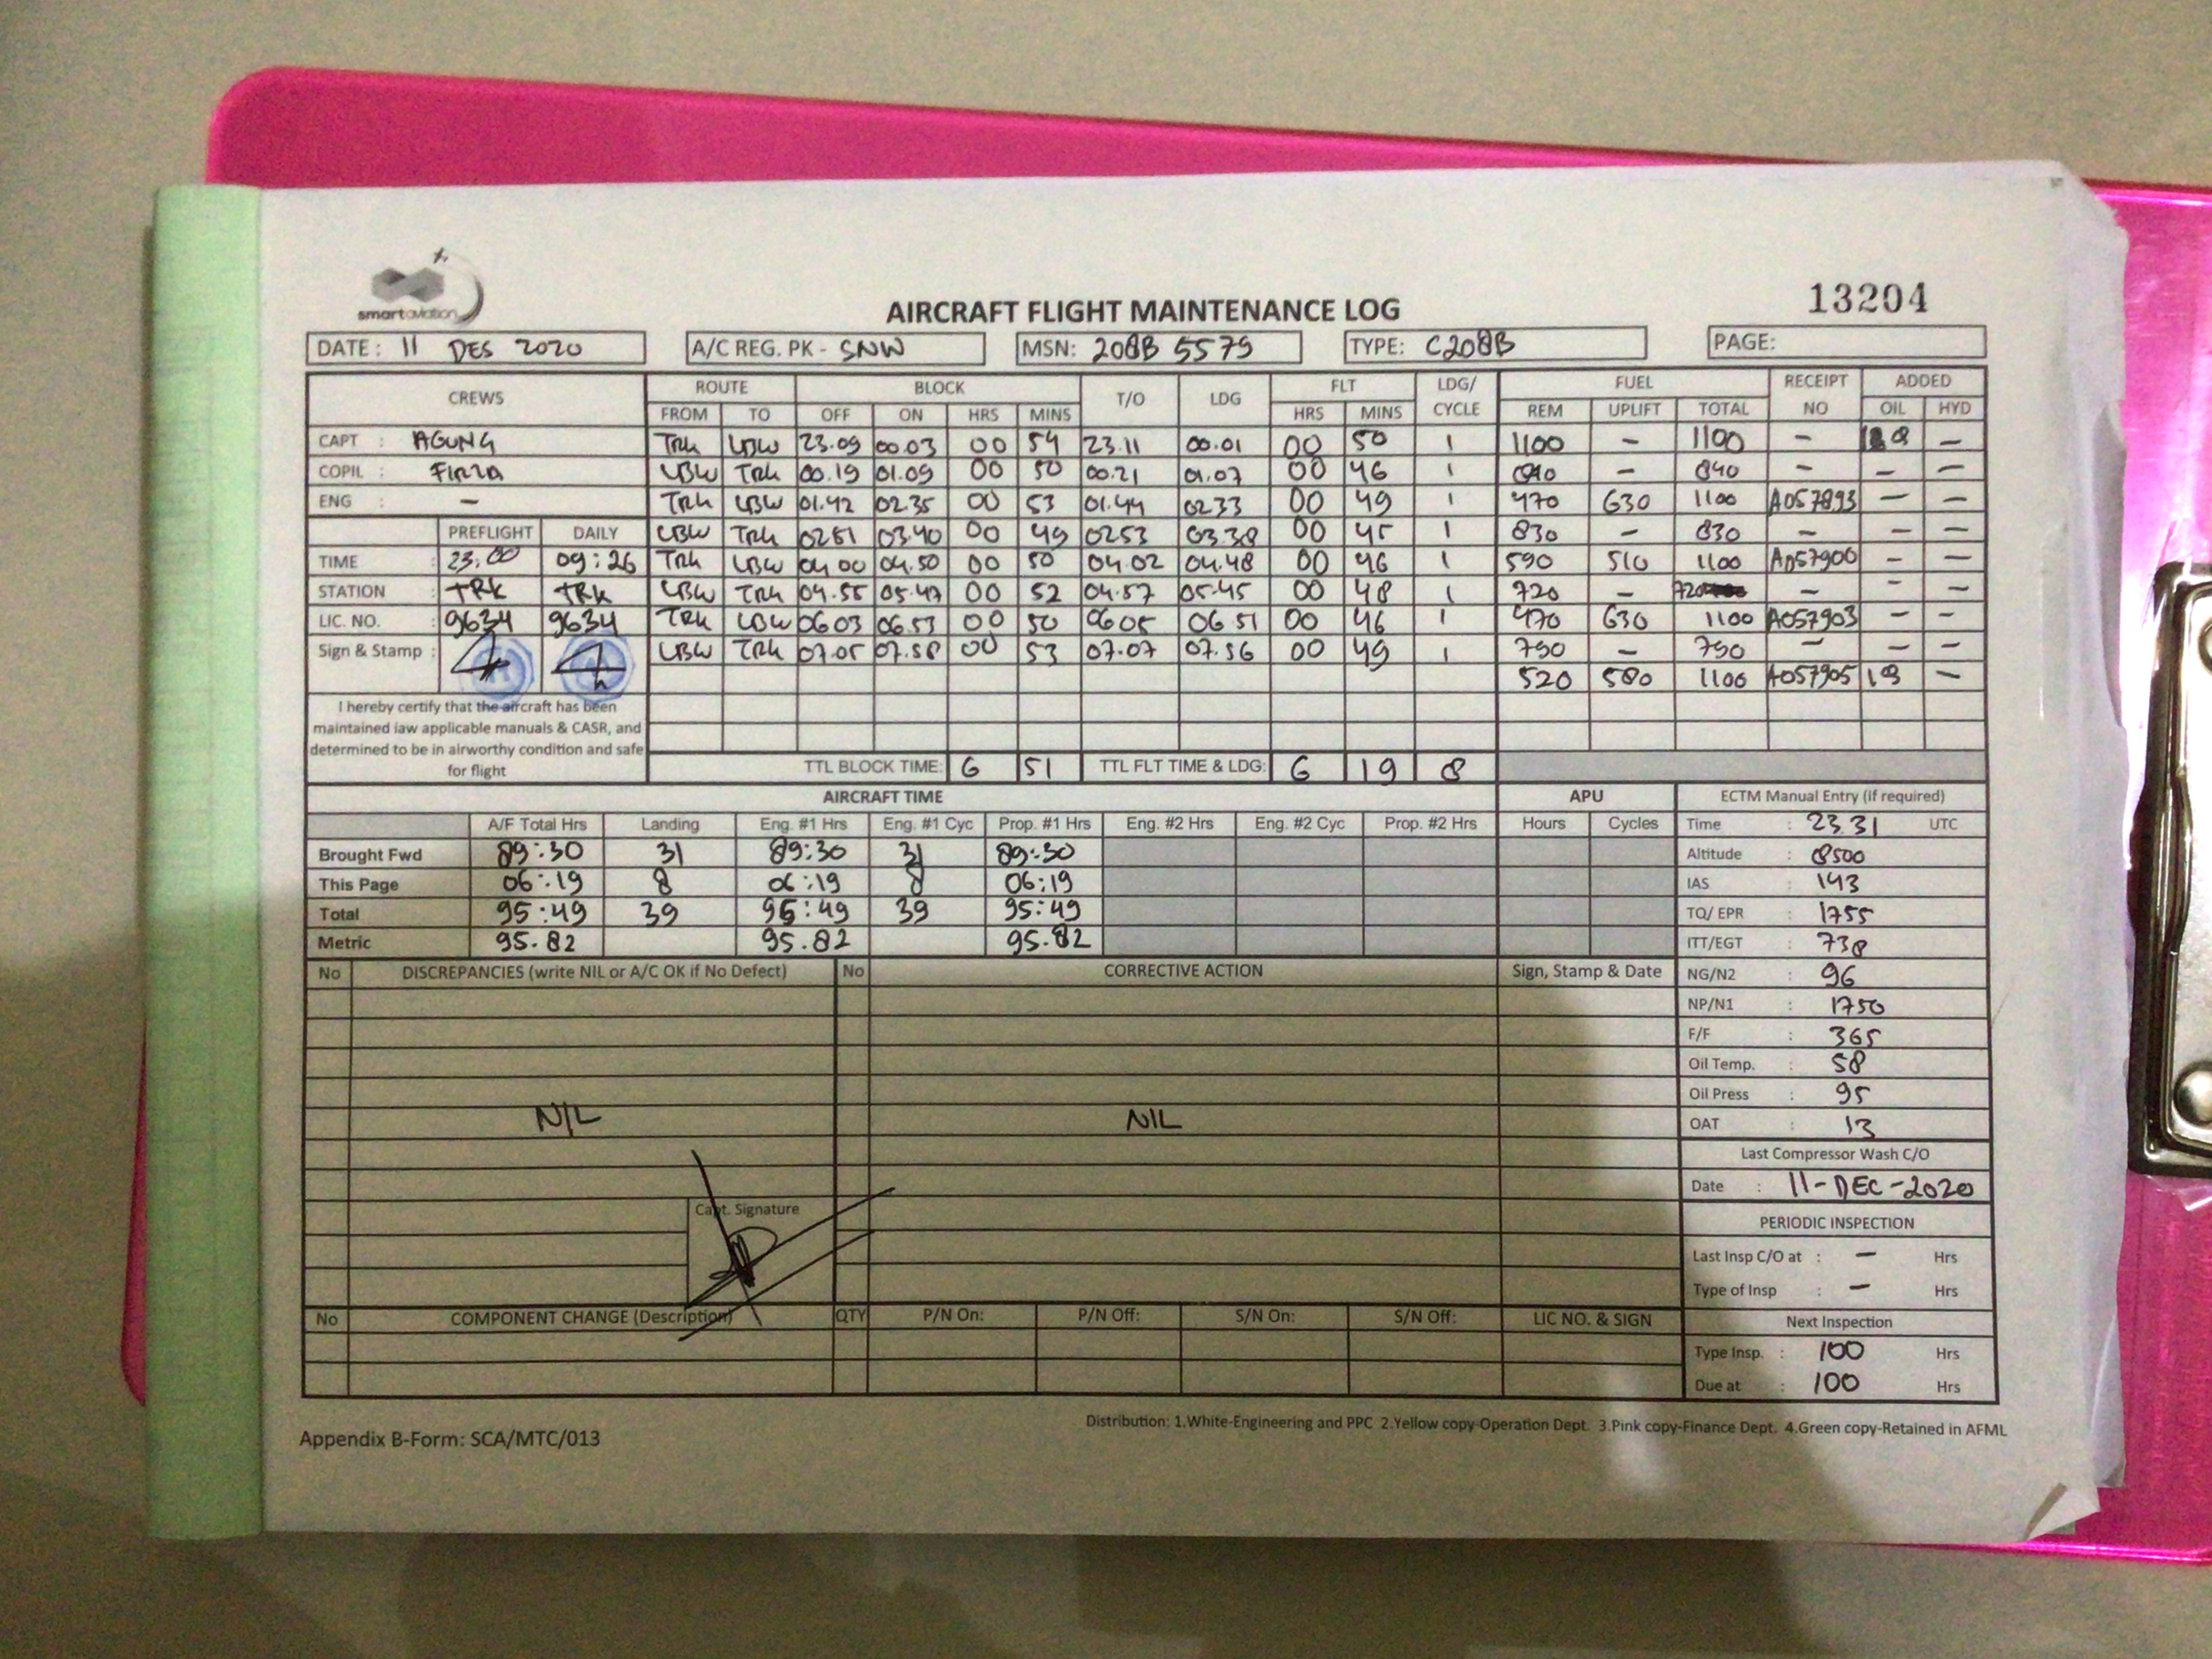 smartaviation
AIRCRAFT FLIGHT MAINTENANCE LOG
13204
DATE : 11 DES 2020 A/C REG. PK - SNW MSN: 208B 5579 TYPE: C208B PAGE:
CREWS ROUTE BLOCK T/O LDG FLT LDG/ CYCLE FUEL RECEIPT NO ADDED
FROM TO OFF ON HRS MINS HRS MINS REM UPLIFT TOTAL OIL HYD
CAPT : AGUNG TRK LBW 23.09 00.03 00 54 23.11 00.01 00 50 1 1100 - 1100 - -
COPIL : FIRZA LBW TRK 00.19 01.09 00 50 00.21 01.07 00 46 1 840 - 840 - - -
ENG : - TRK LBW 01.42 02.35 00 53 01.44 0233 00 49 1 470 630 1100 A057893 - -
PREFLIGHT DAILY LBW TRK 0251 03.40 00 49 0253 03.38 00 45 1 830 - 830 - - -
TIME : 23.00 09:26 TRK LBW 04.00 04.50 00 50 04.02 04.48 00 46 1 590 510 1100 A057900 - -
STATION : TRK TRK LBW TRK 04.55 05.47 00 52 04.57 05.45 00 48 1 720 - 720 - - -
LIC. NO. : 9634 9634 TRK LBW 0603 06.53 00 50 0605 06 51 00 46 1 470 630 1100 A057903 - -
Sign & Stamp : LBW TRK 07.05 07.58 00 53 07.07 07.56 00 49 1 790 - 790 - - -
520 580 1100 A057905 19 -
I hereby certify that the aircraft has been
maintained iaw applicable manuals & CASR, and
determined to be in airworthy condition and safe
for flight
TTL BLOCK TIME: 6 51 TTL FLT TIME & LDG: 6 19 8
AIRCRAFT TIME APU ECTM Manual Entry (if required)
A/F Total Hrs Landing Eng. #1 Hrs Eng. #1 Cyc Prop. #1 Hrs Eng. #2 Hrs Eng. #2 Cyc Prop. #2 Hrs Hours Cycles Time : 23 31 UTC
Brought Fwd 89:30 31 89:30 31 89:30 Altitude : 8500
This Page 06:19 8 06:19 8 06:19 IAS : 143
Total 95:49 39 95:49 39 95:49 TQ/ EPR : 1755
Metric 95.82 95.82 95.82 ITT/EGT : 738
No DISCREPANCIES (write NIL or A/C OK if No Defect) No CORRECTIVE ACTION Sign, Stamp & Date NG/N2 : 96
NP/N1 : 1750
F/F : 365
Oil Temp. : 58
Oil Press : 95
NIL NIL
OAT : 13
Last Compressor Wash C/O
Date : 11-DEC-2020
Capt. Signature
PERIODIC INSPECTION
Last Insp C/O at : - Hrs
Type of Insp : - Hrs
No COMPONENT CHANGE (Description) QTY P/N On: P/N Off: S/N On: S/N Off: LIC NO. & SIGN Next Inspection
Type Insp. : 100 Hrs
Due at : 100 Hrs
Distribution: 1.White-Engineering and PPC 2.Yellow copy-Operation Dept. 3.Pink copy-Finance Dept. 4.Green copy-Retained in AFML
Appendix B-Form: SCA/MTC/013